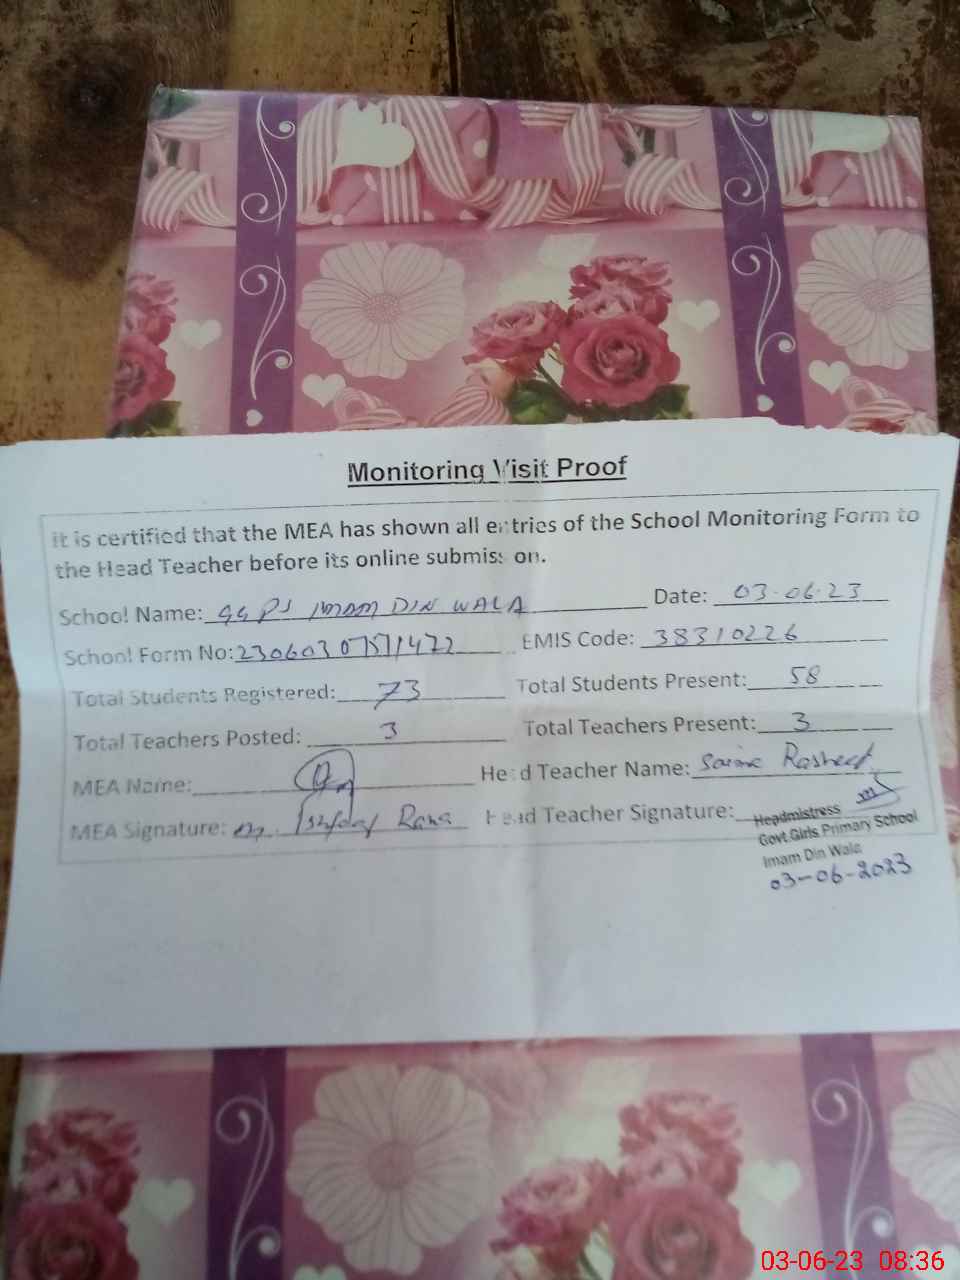 Monitoring Visit Proof
It is certified that the MEA has shown all entries of the School Monitoring Form to
the Head Teacher before its online submission.
School Name: GGPS IMAM DIN WALA Date: 03-06-23
School Form No: EMIS Code: 38310226
Total Students Registered: 73 Total Students Present: 58
Total Teachers Posted: 3 Total Teachers Present: 3
MEA Name: Head Teacher Name: Saima Rasheed
MEA Signature: Rana Head Teacher Signature:
Headmistress
Govt.Girls Primary School
Imam Din Wala
03-06-2023
03-06-23 08:36